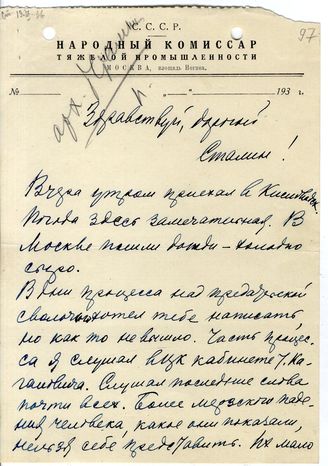 97
С. С. С. Р.
НАРОДНЫЙ КОМИССАР
ТЯЖЕЛОЙ ПРОМЫШЛЕННОСТИ
МОСКВА, площадь Ногина.
№ „ “ 193 г.
арх. Сталин
Здравствуй, дорогой
Сталин!
Вчера утром приехал в Кисловодск.
Погода здесь замечательная. В
Москве пошли дожди – холодно
сыро.
В дни процесса над предательской
сволочью хотел тебе написать
но как то не вышло. Часть процес-
са я слушал в кабинете т. Ка-
гановича. Слушал последние слова
почти всех. Более мерзкого паде-
ния человека, какое они показали,
нельзя себе представить. Их мало